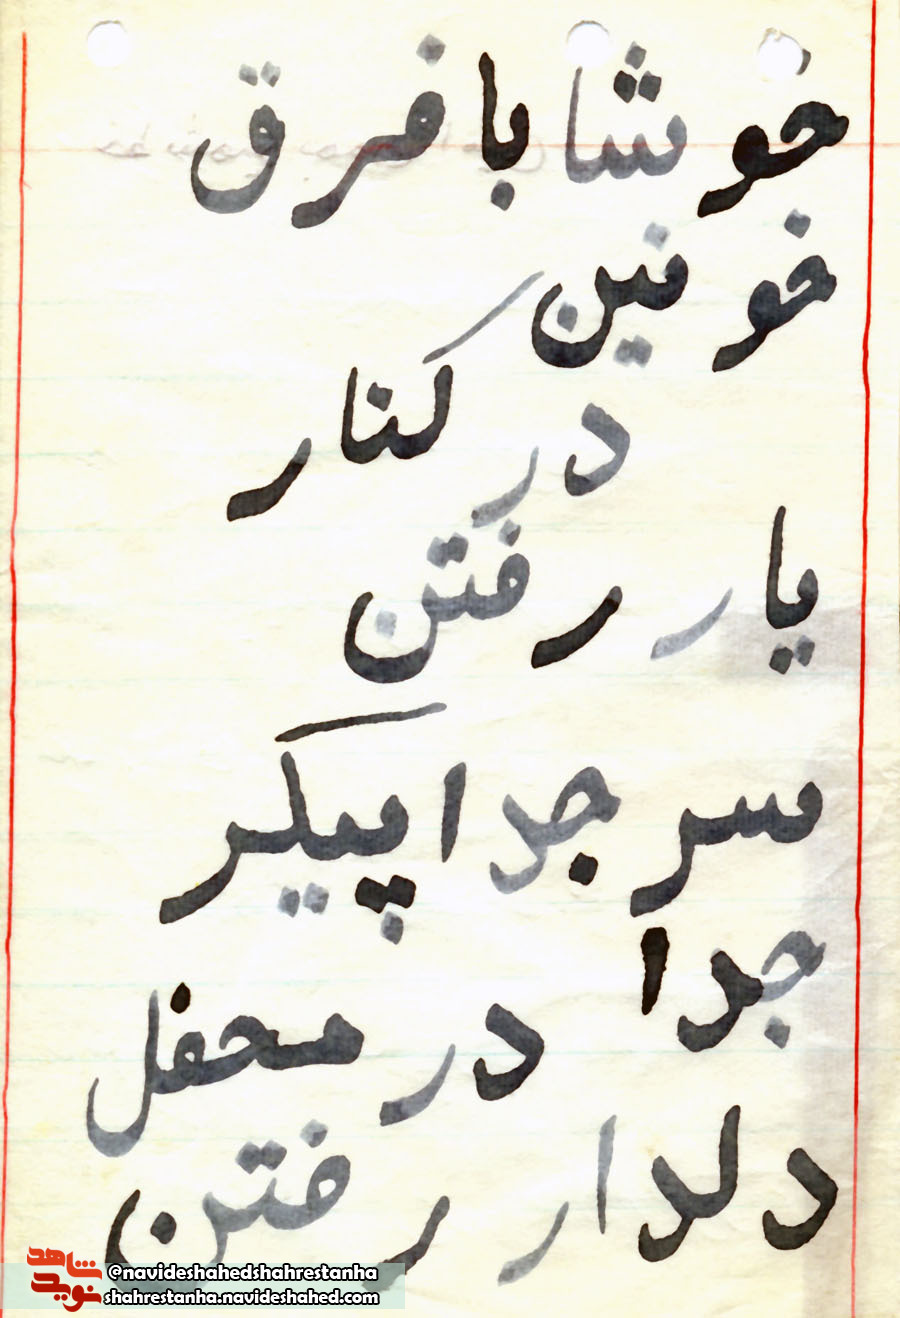 خوشا با فرق
خونین
در کنار
یار رفتن
سر جدا پیکر
جدا در محفل
دلدار رفتن
شاهد
نوید
@navideshahedshahrestanha
shahrestanha.navideshahed.com